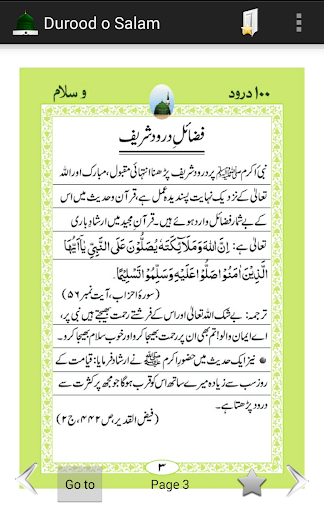 Durood o Salam
۱۰۰ درود
و سلام
فضائلِ درود شریف
نبی اکرم ﷺ پر درود شریف پڑھنا انتہائی مقبول، مبارک اور اللہ
تعالیٰ کے نزدیک نہایت پسندیدہ عمل ہے، قرآن و حدیث میں اس
کے بے شمار فضائل وارد ہوئے ہیں۔ قرآنِ مجید میں ارشادِ باری
تعالیٰ ہے: اِنَّ اللّٰهَ وَمَلٰٓئِكَتَهٗ يُصَلُّوْنَ عَلَى النَّبِيِّ يٰٓاَيُّهَا
الَّذِيْنَ اٰمَنُوْا صَلُّوْا عَلَيْهِ وَسَلِّمُوْا تَسْلِيْمًا۔
(سورۂ احزاب، آیت نمبر ۵۶)
ترجمہ: بے شک اللہ تعالیٰ اور اس کے فرشتے رحمت بھیجتے ہیں نبی پر،
اے ایمان والو! تم بھی ان پر رحمت بھیجا کرو اور خوب سلام بھیجا کرو۔
نیز ایک حدیث میں حضورِ اکرم ﷺ نے ارشاد فرمایا: قیامت کے
روز سب سے زیادہ میرے ساتھ اس کو قرب ہوگا جو مجھ پر کثرت سے
درود پڑھتا ہے۔
(فیض القدیر، ص ۴۴۲، ج ۲)
۳
Go to
Page 3